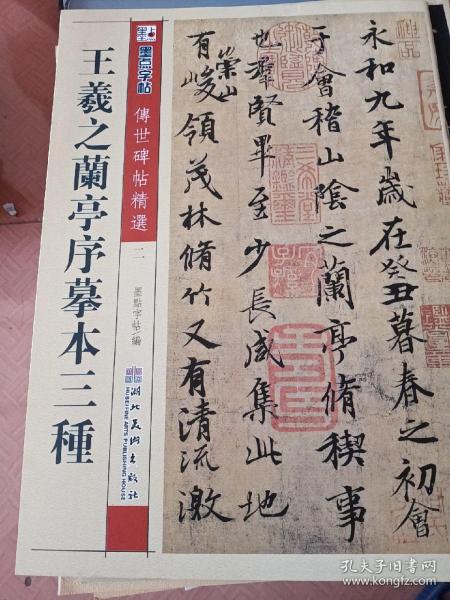 王羲之蘭亭序摹本三種
墨点
墨点字帖
傳世碑帖精選
二
墨點字帖/編
湖北美術出版社
HUBEI FINE ARTS PUBLISHING HOUSE
永和九年歲在癸丑暮春之初會
于會稽山陰之蘭亭脩稧事
也羣賢畢至少長咸集此地
有崇山峻領茂林脩竹又有清流激
孔夫子旧书网
kongfz.com